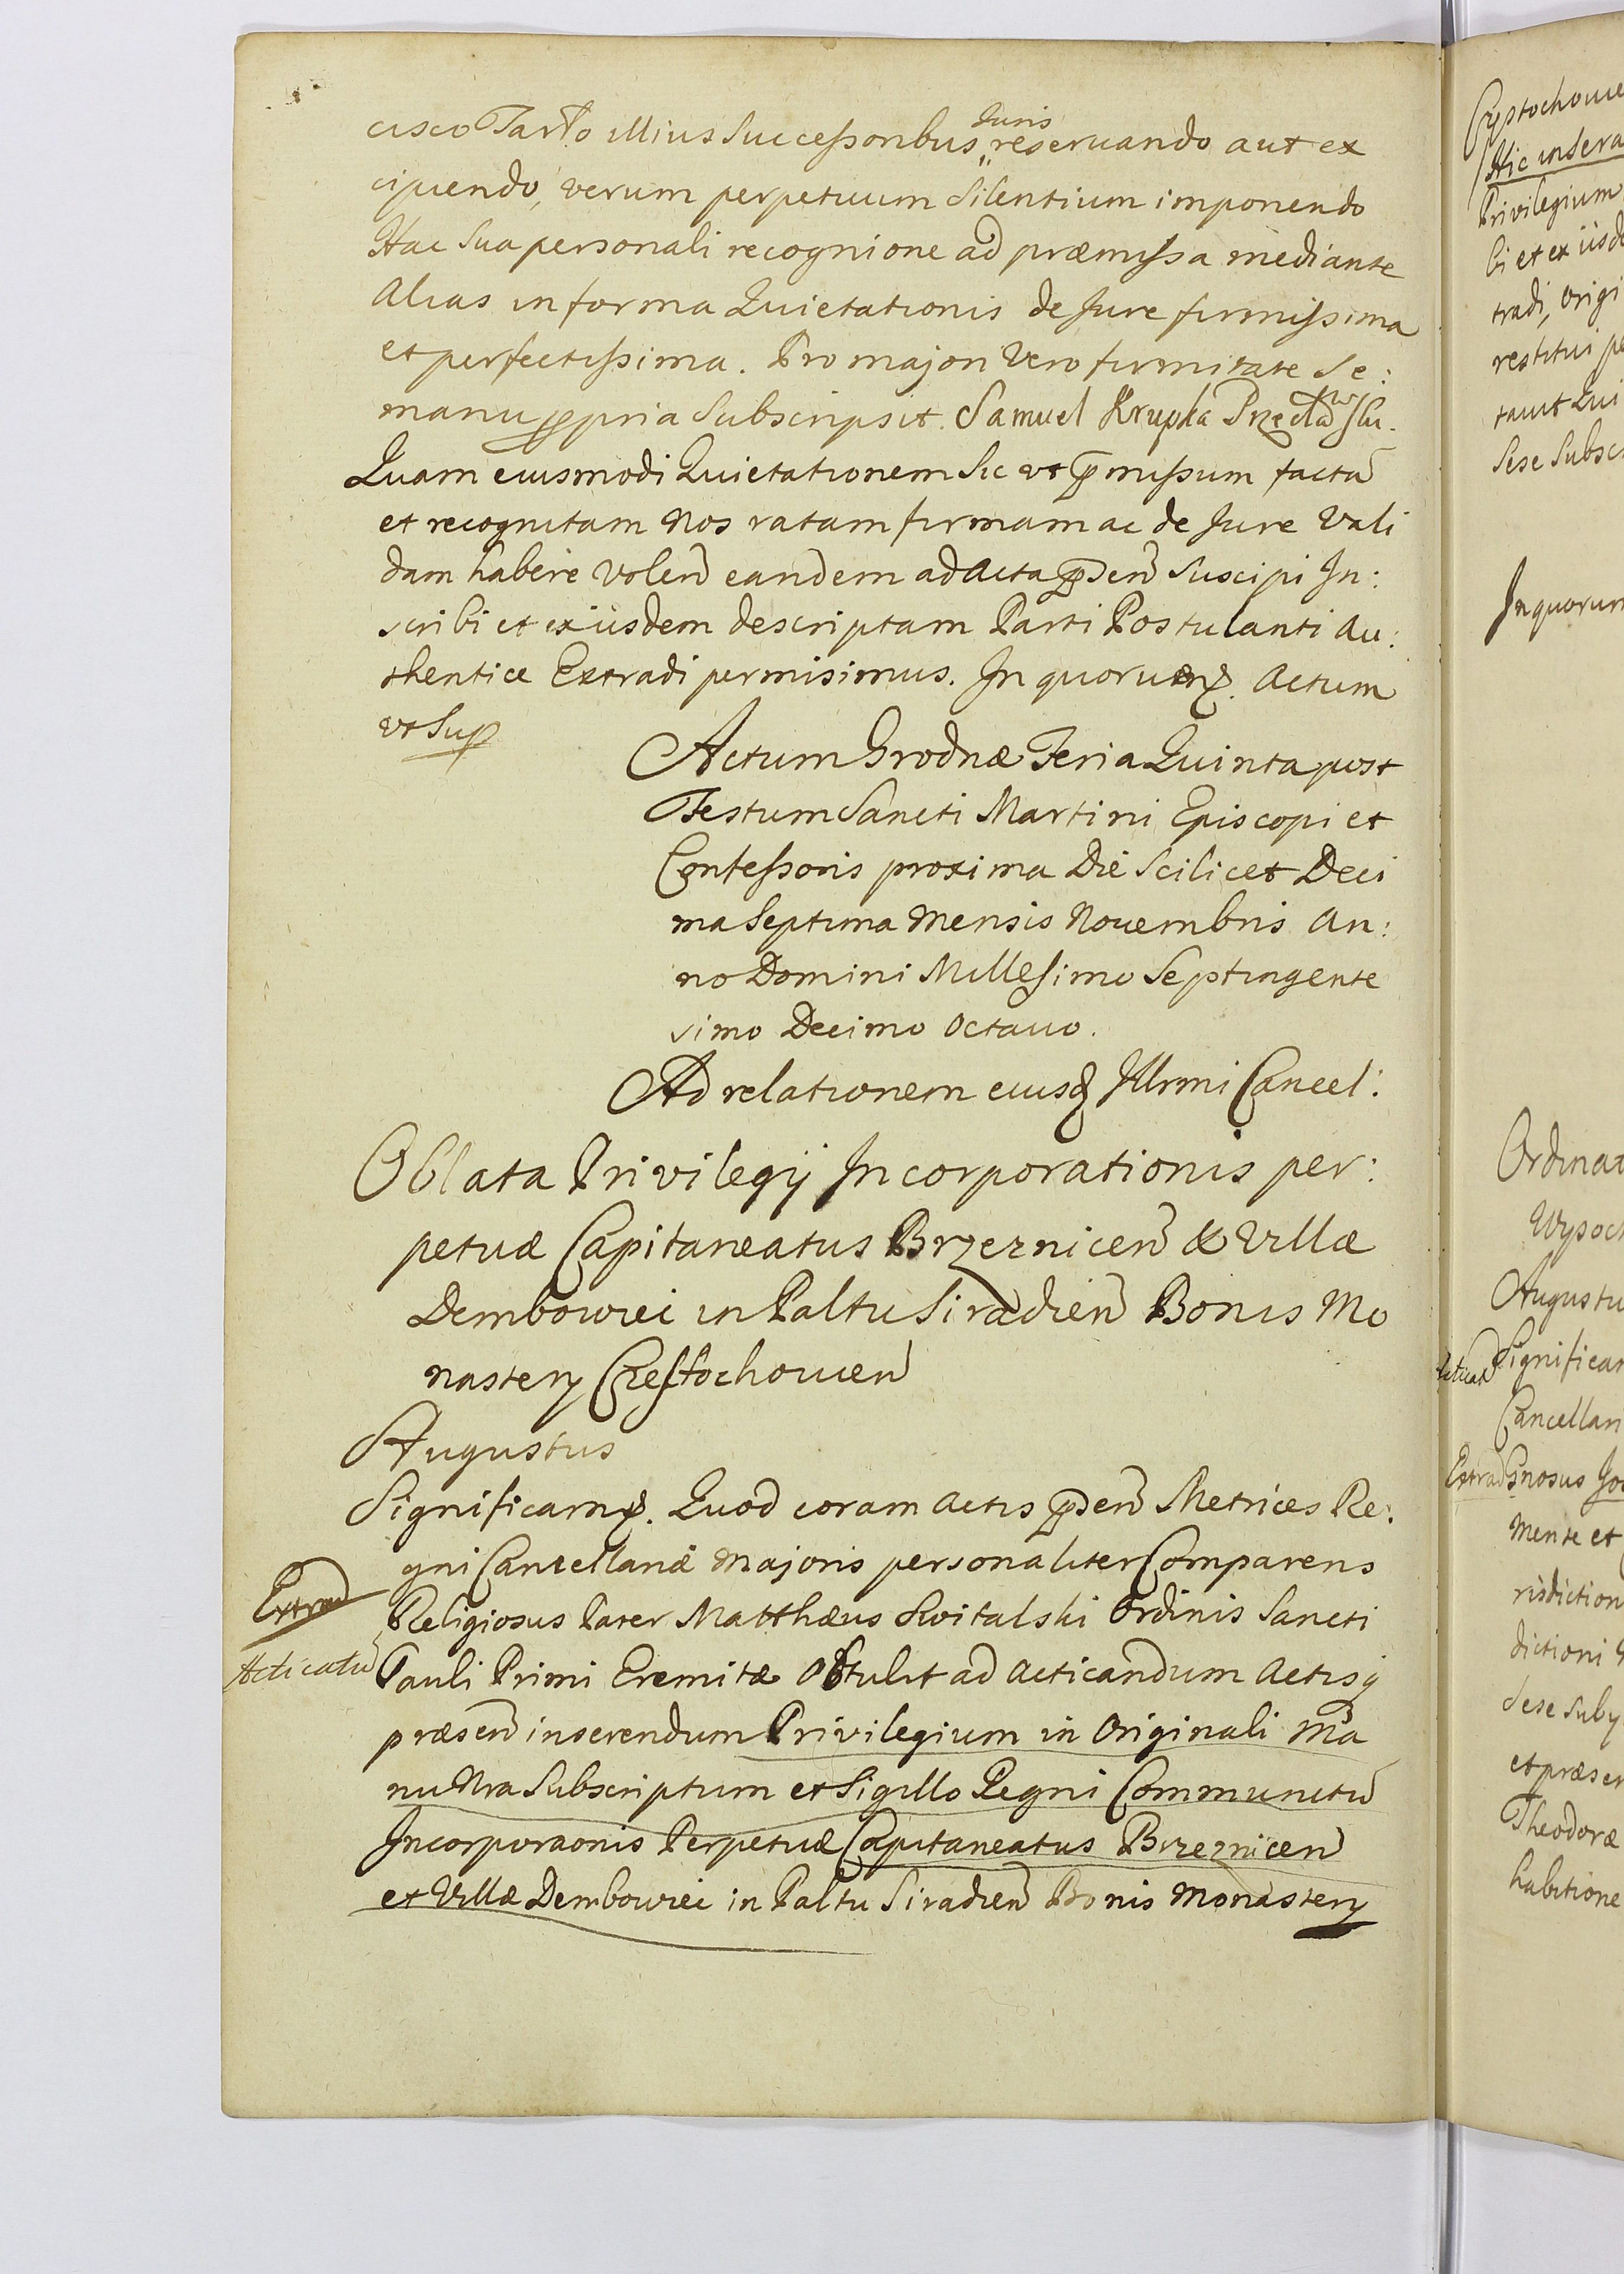 Juris
cisco Tarło illius Successoribus, reservando aut ex
cipiendo, verum perpetuum Silentium imponendo
Hac Sua personali recognione ad præmissa mediante
Alias in forma Quietationis de Jure firmissima
et perfectissima. Pro majori Vero firmitate Se:
manu ppria Subscripsit. Samuel Krupka Przecławski.
Quam eiusmodi Quietationem Sic ut pmissum factã
et recognitam Nos ratam firmam ac de Jure Vali
dam habere Volen eandem ad Acta psen Suscipi In:
scribi et ex iisdem descriptam Parti Postulanti Au:
thentice Extradi permisimus. In quorum. Actum
ut Sup
Actum Grodnæ Feria Quinta post
Festum Sancti Martini Episcopi et
Confessoris proxima Die Scilicet Deci
ma Septima Mensis Novembris An:
no Domini Millesimo Septingente
simo Decimo Octavo.
Ad relationem eiusd Illrmi Cancel:
Oblata Privilegij Incorporationis per:
petuæ Capitaneatus Brzeznicen & Villæ
Dembowiei in Paltu Siradien Bonis Mo
nastery Czestochouien
Augustus
Significam. Quod coram Actis psen Metrices Re:
gni Cancellariæ Majoris personaliter Comparens
Extrad
Religiosus Pater Matthæus Switalski Ordinis Sancti
Acticatũ
Pauli Primi Eremitæ Obtulit ad Acticandum Actisq
præsen inserendum Privilegium in Originali Ma
nu Nra Subscriptum et Sigillo Regni Communitũ
Incorporaonis Perpetuæ Capitaneatus Brzeznicen
et Villæ Dembowiei in Paltu Siradien Bonis Monastery
Hic insera
Privilegium
bi et ex iisde
tradi, origi
restitui pe
tavit Qui
Sese Subsc
In quorum
Ordinat
Wysoch
Augustu
Significam
Cancellari
Extrad
mente et
risdiction
dictioni
sese Suby
et præsen
Theodoræ
habitione